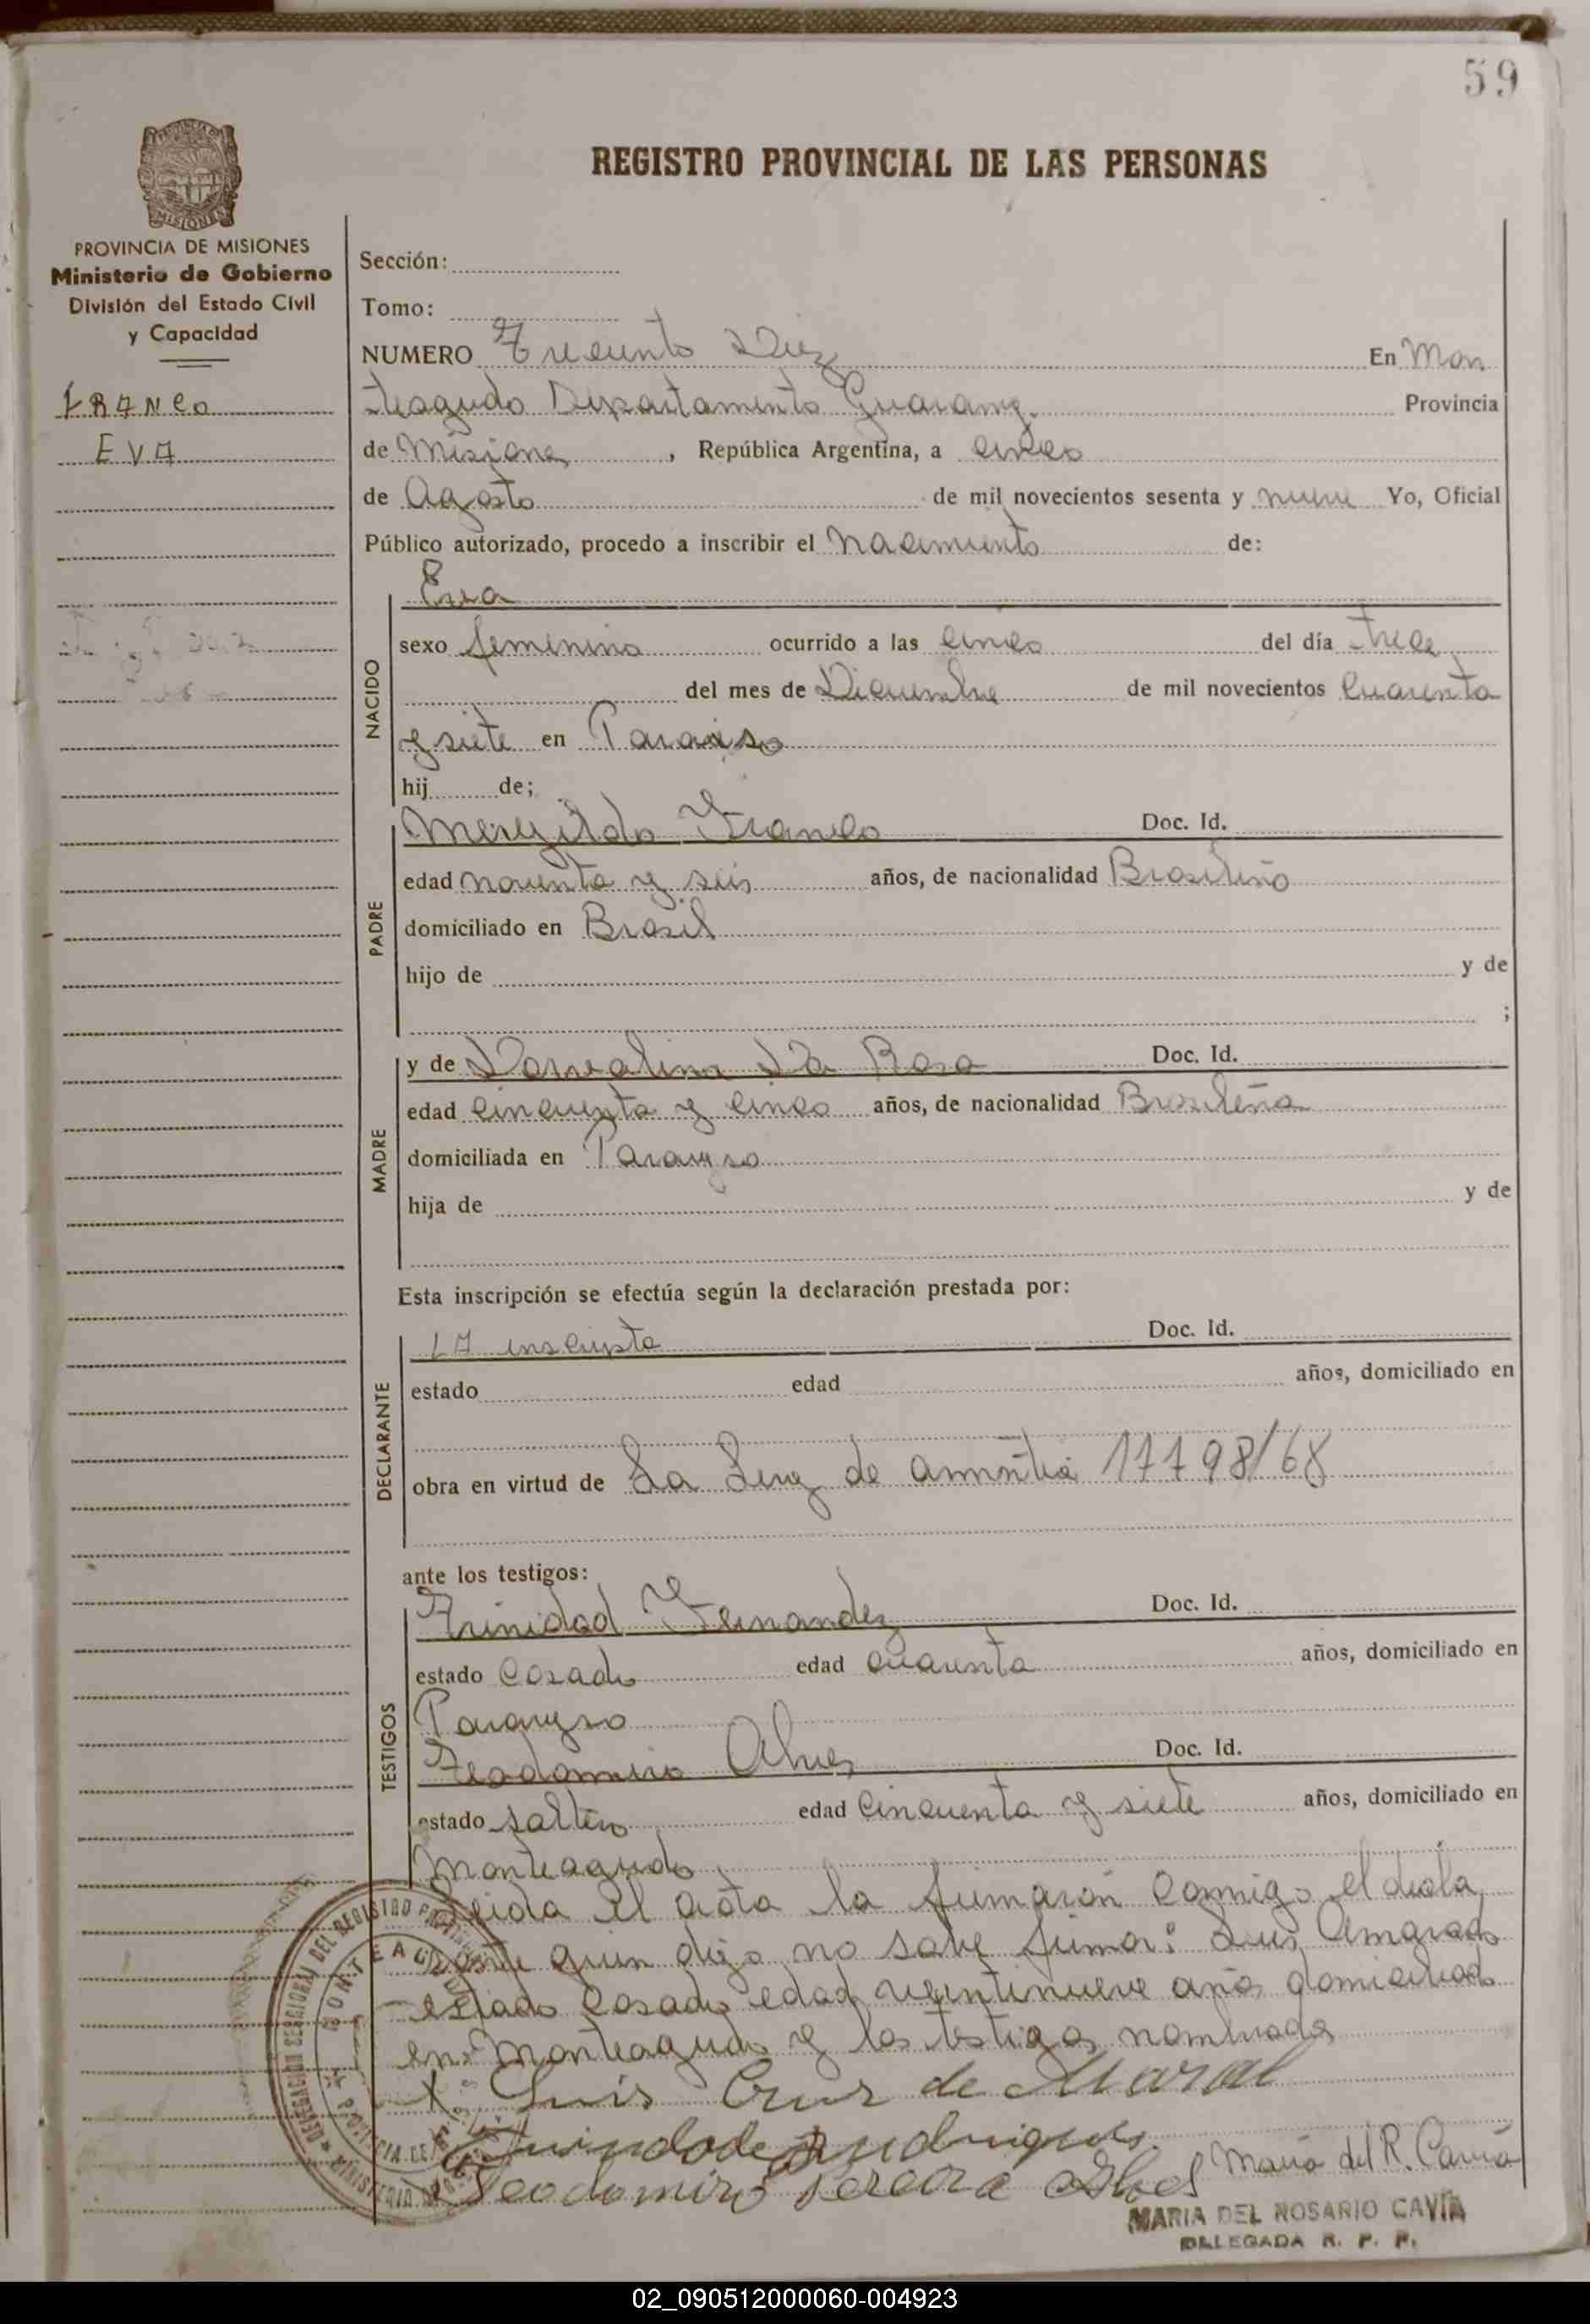 59
REGISTRO PROVINCIAL DE LAS PERSONAS
MISIONES
PROVINCIA DE MISIONES
Ministerio de Gobierno
División del Estado Civil
y Capacidad
FRANCO
EVA
Sección:
Tomo:
NUMERO Treciento Diez En Mon
teagudo Departamento Guarany. Provincia
de Misiones, República Argentina, a cinco
de Agosto de mil novecientos sesenta y nueve Yo, Oficial
Público autorizado, procedo a inscribir el nacimiento de:
NACIDO
Eva
sexo femenino ocurrido a las cinco del día trece
del mes de Diciembre de mil novecientos cuarenta
y siete en Paraiso
hij de;
PADRE
Mergildo Franco Doc. Id.
edad noventa y seis años, de nacionalidad Brasileño
domiciliado en Brasil
hijo de y de
;
MADRE
y de Dorvalina Da Rosa Doc. Id.
edad cincuenta y cinco años, de nacionalidad Brasileña
domiciliada en Parayso
hija de y de
Esta inscripción se efectúa según la declaración prestada por:
DECLARANTE
LA inscripta Doc. Id.
estado edad años, domiciliado en
obra en virtud de La Ley de amnitia 17798/68
ante los testigos:
TESTIGOS
Trinidad Fernandez Doc. Id.
estado Casado edad cuarenta años, domiciliado en
Parayso
Teodomiro Alves Doc. Id.
estado soltero edad cincuenta y siete años, domiciliado en
Monteagudo
Leida el acta la firmaron conmigo el decla
rante quien dijo no sabe firmar: Luis Amarado
estado casado edad veintinueve años domiciliado
en Monteagudo y los testigos nombrados
Luis Cruz de Maral
Teodomiro Pereira Alves
Maria del R. Cavia
MARIA DEL ROSARIO CAVIA
DELEGADA R. P. P.
02_090512000060-004923